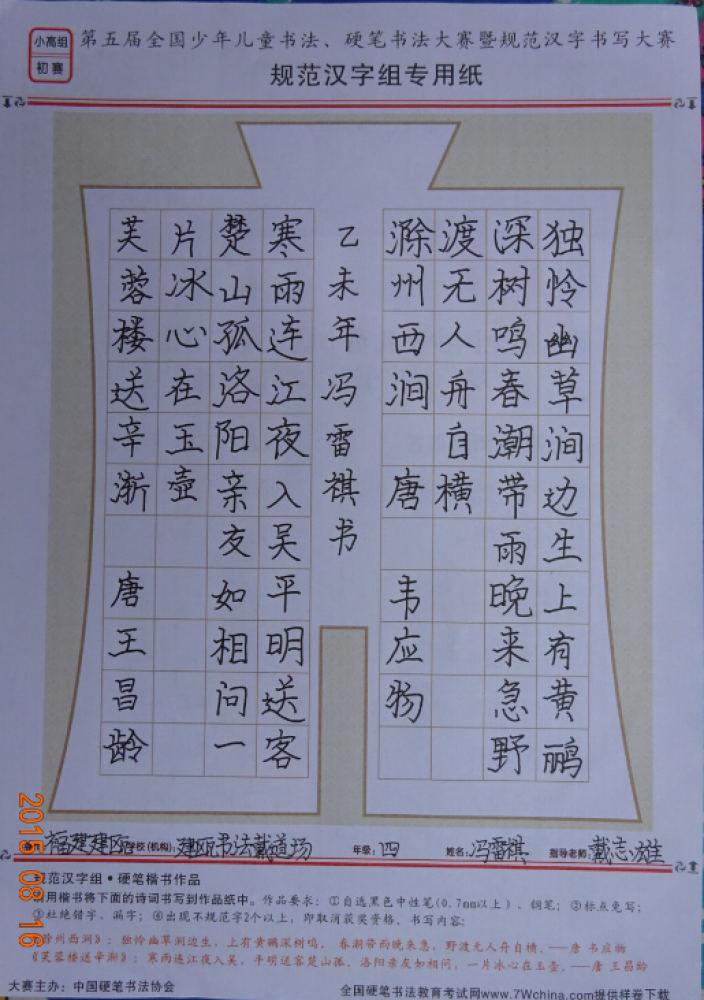 小高组
初赛
第五届全国少年儿童书法、硬笔书法大赛暨规范汉字书写大赛
规范汉字组专用纸
独怜幽草涧边生上有黄鹂
深树鸣春潮带雨晚来急野
渡无人舟自横
滁州西涧 唐 韦应物
乙未年冯雷祺书
寒雨连江夜入吴平明送客
楚山孤洛阳亲友如相问一
片冰心在玉壶
芙蓉楼送辛渐 唐 王昌龄
2015 08 16
福建建瓯 学校(机构): 建瓯书法戴道场 年级: 四 姓名: 冯雷祺 指导老师: 戴志雄
规范汉字组•硬笔楷书作品
请用楷书将下面的诗词书写到作品纸中。作品要求：①自选黑色中性笔(0.7mm以上)、钢笔；②标点免写；
③杜绝错字、漏字；④出现不规范字2个以上，即取消获奖资格。书写内容：
《滁州西涧》：独怜幽草涧边生，上有黄鹂深树鸣。春潮带雨晚来急，野渡无人舟自横。——唐 韦应物
《芙蓉楼送辛渐》：寒雨连江夜入吴，平明送客楚山孤。洛阳亲友如相问，一片冰心在玉壶。——唐 王昌龄
大赛主办：中国硬笔书法协会 全国硬笔书法教育考试网www.7Wchina.com提供样卷下载